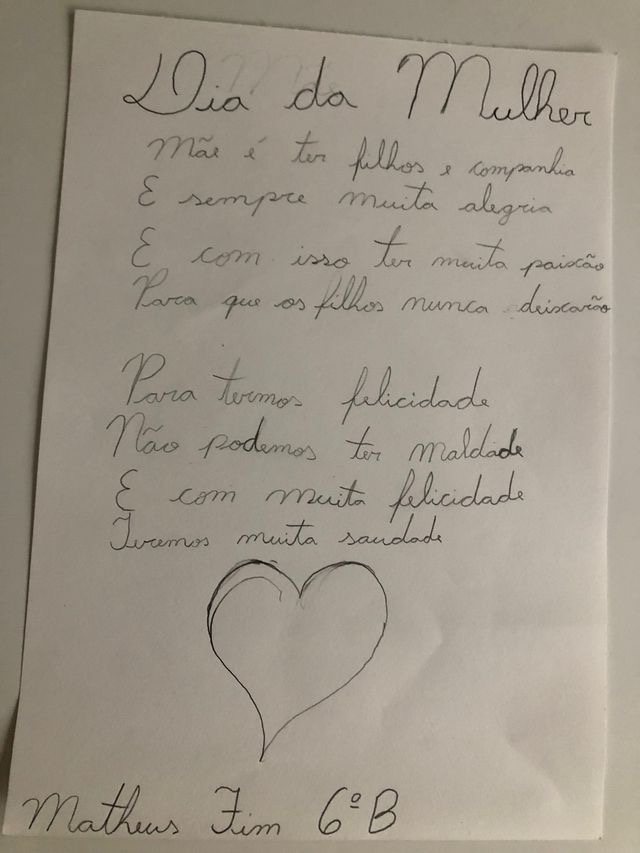 Dia da Mulher
Mãe é ter filhos e companhia
E sempre muita alegria
E com isso ter muita paixão
Para que os filhos nunca deixarão
Para termos felicidade
Não podemos ter maldade
E com muita felicidade
Teremos muita saudade
Matheus Fim 6º B